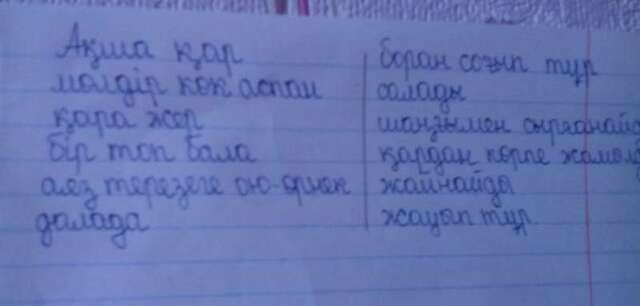 Ақша қар боран соғып тұр
мөлдір көк аспан салады
қара жер шаңғымен сырғанайд
бір топ бала қардан көрпе жамыл
аяз терезеге ою-өрнек жайнайды
далада жауып тұр